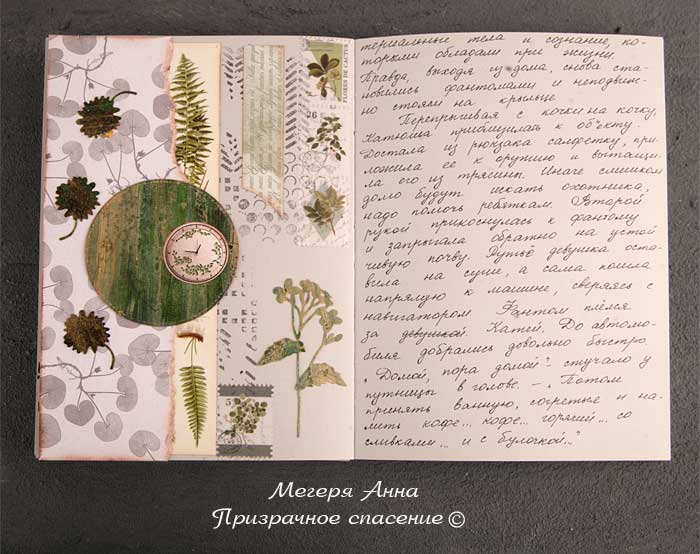 FLORES DE CACTUS
26
5
териальные тела и сознание, ко-
торыми обладали при жизни.
Правда, выходя из дома, снова ста-
новились фантомами и неподвиж-
но стояли на крыльце.
Перепрыгивая с кочки на кочку,
Катюша приблизилась к объекту.
Достала из рюкзака салфетку, при-
ложила её к оружию и вытащи-
ла его из трясины. Иначе слишком
долго будут искать охотника,
надо помочь ребяткам. Второй
рукой прикоснулась к фантому
и запрыгала обратно на устой
чивую почву. Ружьё девушка оста-
вила на суше, а сама пошла
напрямую к машине, сверяясь с
навигатором. Фантом плёлся
за девушкой Катей. До автомо-
биля добрались довольно быстро.
„Домой, пора домой" - стучало у
путницы в голове. - „Потом
принять ванную, согреться и на-
лить кофе... кофе... горячий... со
сливками... и с булочкой..."
Мегеря Анна
Призрачное спасение ©